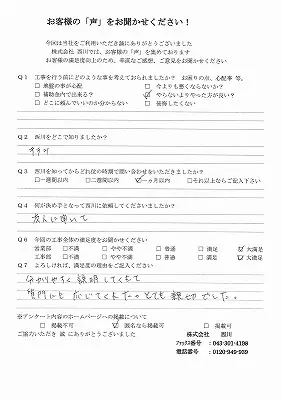 お客様の「声」をお聞かせください！
今回は当社をご利用いただき誠にありがとうございました
株式会社 西川では、お客様の「声」を集めております
お客様の満足度向上のため、率直なご感想、ご意見をお聞かせください
Q1 工事を行う前にどのような事を考えておられましたか？ お困りの点、心配事 等。
□ 地盤の事が心配 □ 今よりも悪くならないか？
□ 補助金内で出来る？ ☑ やらないよりやった方が良い？
□ どこに頼んでいいのか分からない □ 後悔したくない
Q2 西川をどこで知りましたか？
チラシ
Q3 西川を知ってからどれ位の時期で問い合わせをいただきましたか？
□一週間以内 □二週間以内 ☑一ヵ月以内 □それ以上ならご記入下さい
Q4 何が決め手となって西川に依頼してくださいましたか？
友人に聞いて
Q6 今回の工事全体の満足度をお聞かせください
営業部 □不満 □やや不満 □普通 □満足 ☑大満足
工事部 □不満 □やや不満 □普通 □満足 ☑大満足
Q7 よろしければ、満足度の理由をご記入ください
分かりやすく説明してくれて
質問にも応じてくれたのでとても親切でした。
※アンケート内容のホームページへの掲載について
□掲載不可 ☑匿名なら掲載可 □掲載可
ご協力いただき 誠 にありがとうございました 株式会社 西川
ファックス番号 ：043-301-4198
電話番号 ：0120-949-939